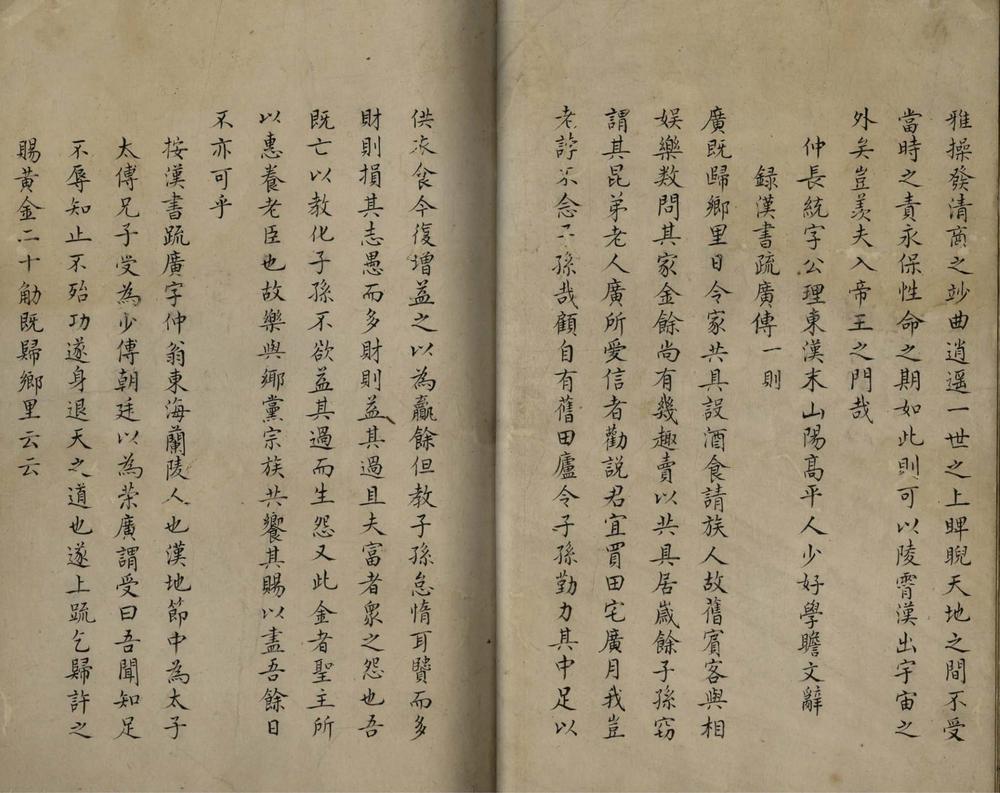 雅操發清商之竗曲逍遥一世之上睥睨天地之間不受
當時之責永保性命之期如此則可以陵霄漢出宇宙之
外矣豈羨夫入帝王之門哉
仲長統字公理東漢末山陽高平人少好學贍文辭
録漢書疏廣傳一則
廣既歸鄉里日令家共具設酒食請族人故舊賓客與相
娛樂数問其家金餘尚有幾趣賣以共具居歲餘子孫窃
謂其昆弟老人廣所愛信者勸説君宜買田宅廣曰我豈
老誖不念子孫哉顧自有舊田廬令子孫勤力其中足以
供衣食今復增益之以為贏餘但教子孫怠惰耳賢而多
財則損其志愚而多財則益其過且夫富者衆之怨也吾
既亡以教化子孫不欲益其過而生怨又此金者聖主所
以惠養老臣也故樂與鄉黨宗族共饗其賜以盡吾餘日
不亦可乎
按漢書疏廣字仲翁東海蘭陵人也漢地節中為太子
太傅兄子受為少傅朝廷以為荣廣謂受曰吾聞知足
不辱知止不殆功遂身退天之道也遂上疏乞歸許之
賜黄金二十觔既歸鄉里云云